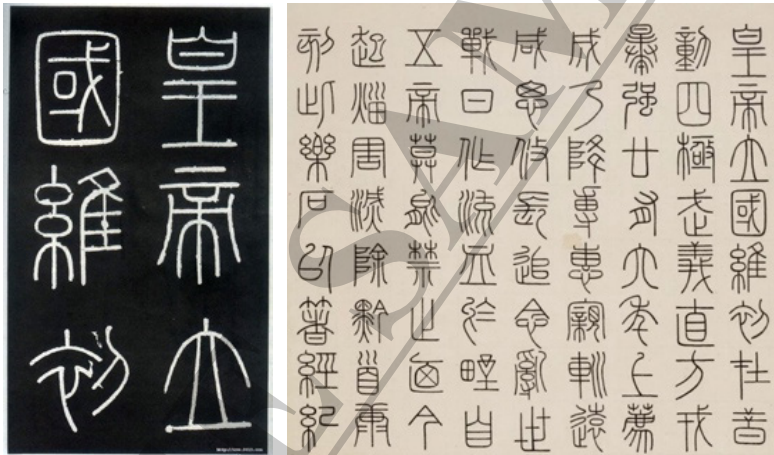 皇帝立
國維初
皇帝立國維初在昔
動四極武義直方戎
暴強廿有六年上薦
成乃降專惠親巡遠
咸思攸長追念亂世
戰日作流血於野自
五帝莫能禁止迺今
起災害滅除黔首康
刻此樂石以著經紀